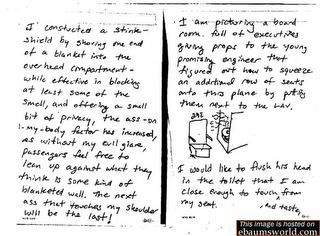 I constructed a stink-
shield by shoving one end
of a blanket into the
overhead compartment -
while effective in blocking
at least some of the
smell, and offering a small
bit of privacy, the ass-on
-my-body factor has increased,
as without my evil glare,
passengers feel free to
lean up against what they
think is some kind of
blanketed wall. The next
ass that touches my shoulder
will be the last!
I am picturing a board
room full of executives
giving props to the young
promising engineer that
figured out how to squeeze
an additional row of seats
onto this plane by putting
them next to the LAV.
I would like to flush his head
in the toilet that I am
close enough to touch from
my seat.
and taste
This image is hosted on
ebaumsworld.com